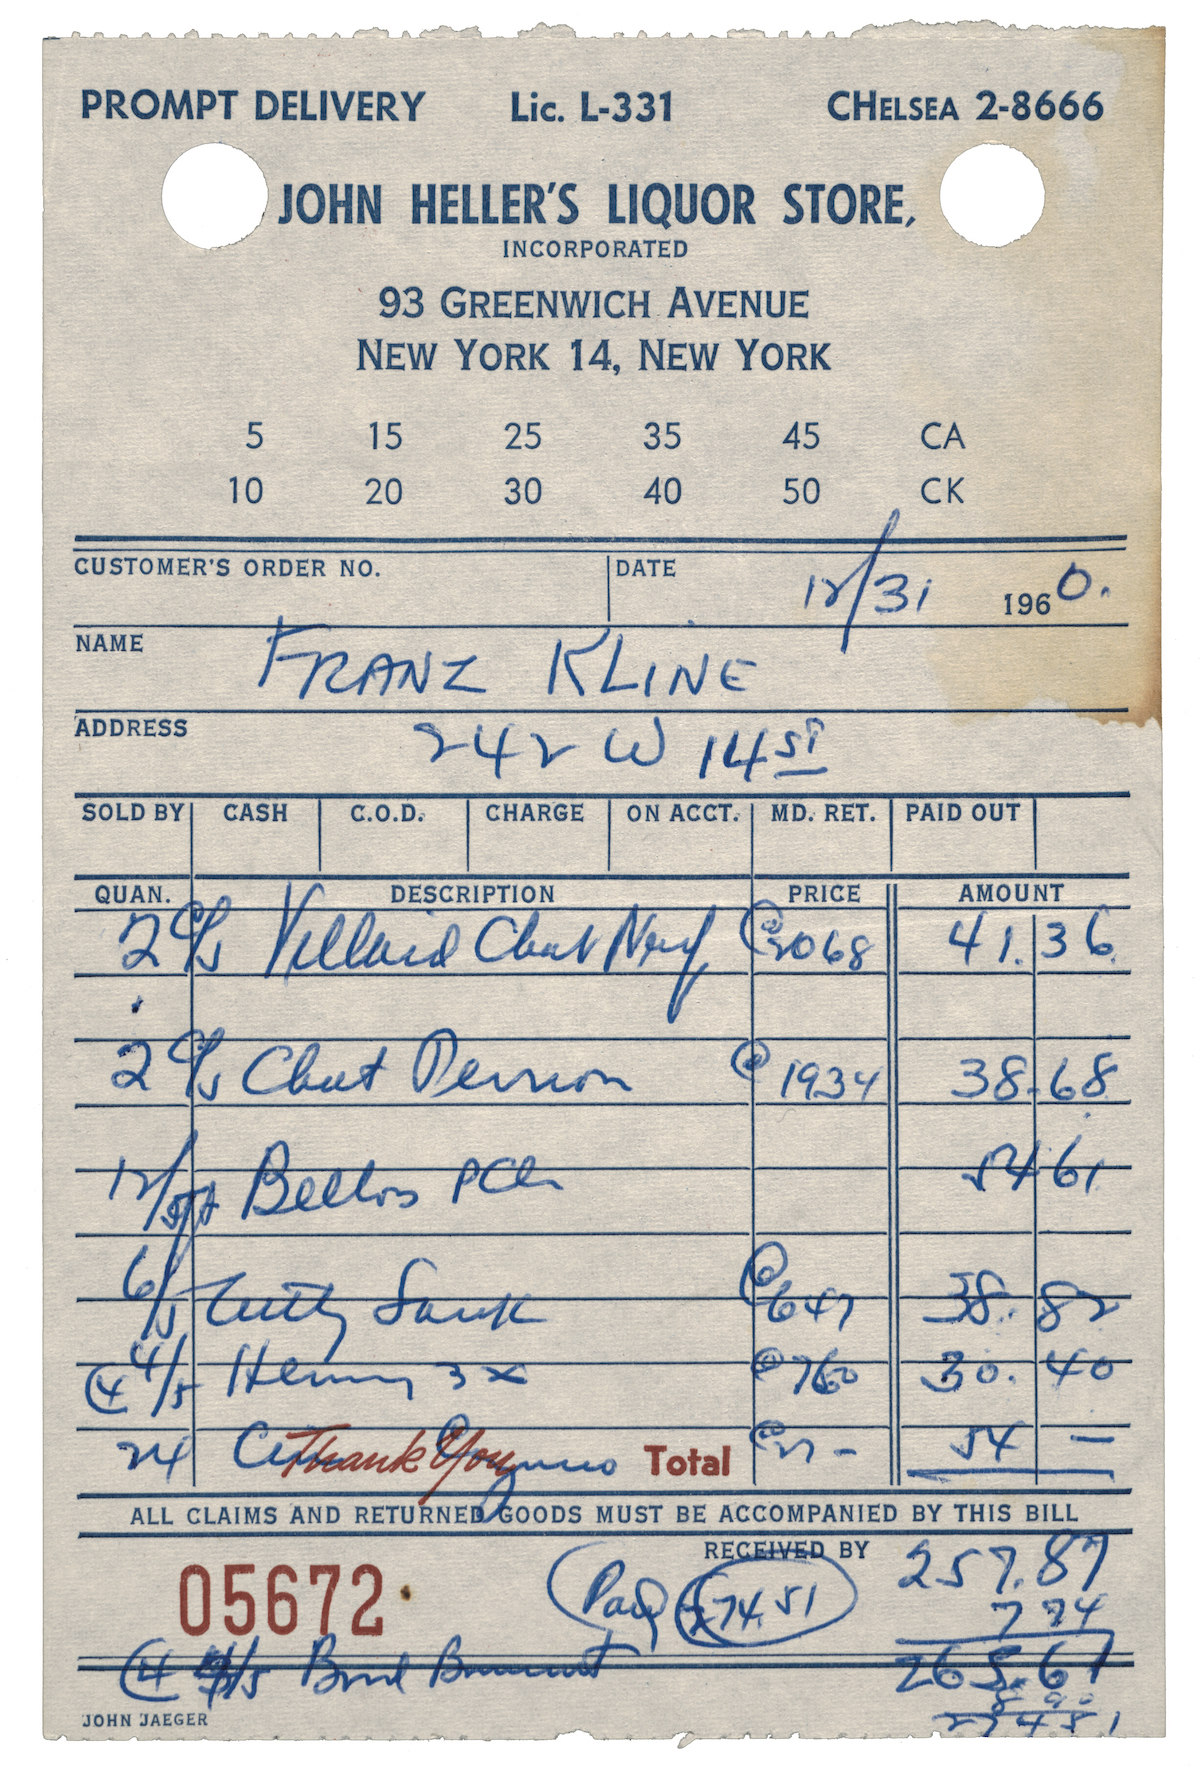 PROMPT DELIVERY Lic. L-331 CHELSEA 2-8666
JOHN HELLER'S LIQUOR STORE,
INCORPORATED
93 GREENWICH AVENUE
NEW YORK 14, NEW YORK
5 15 25 35 45 CA
10 20 30 40 50 CK
CUSTOMER'S ORDER NO. DATE 12/31 1960.
NAME FRANZ KLINE
ADDRESS 242 W 14 ST
SOLD BY CASH C.O.D. CHARGE ON ACCT. MD. RET. PAID OUT
QUAN. DESCRIPTION PRICE AMOUNT
2 c/s Chat @ 2068 41.36
2 c/s Chat @ 1934 38.68
12/5th 54 61
6/5 Cutty Sark @ 647 38.82
4/5 @ 760 30.40
24 Thank You Total @ 27 - 54 —
ALL CLAIMS AND RETURNED GOODS MUST BE ACCOMPANIED BY THIS BILL
RECEIVED BY 257.87
05672 Paid 274.51 7 74
4/5 265.61
8 90
JOHN JAEGER 274 51